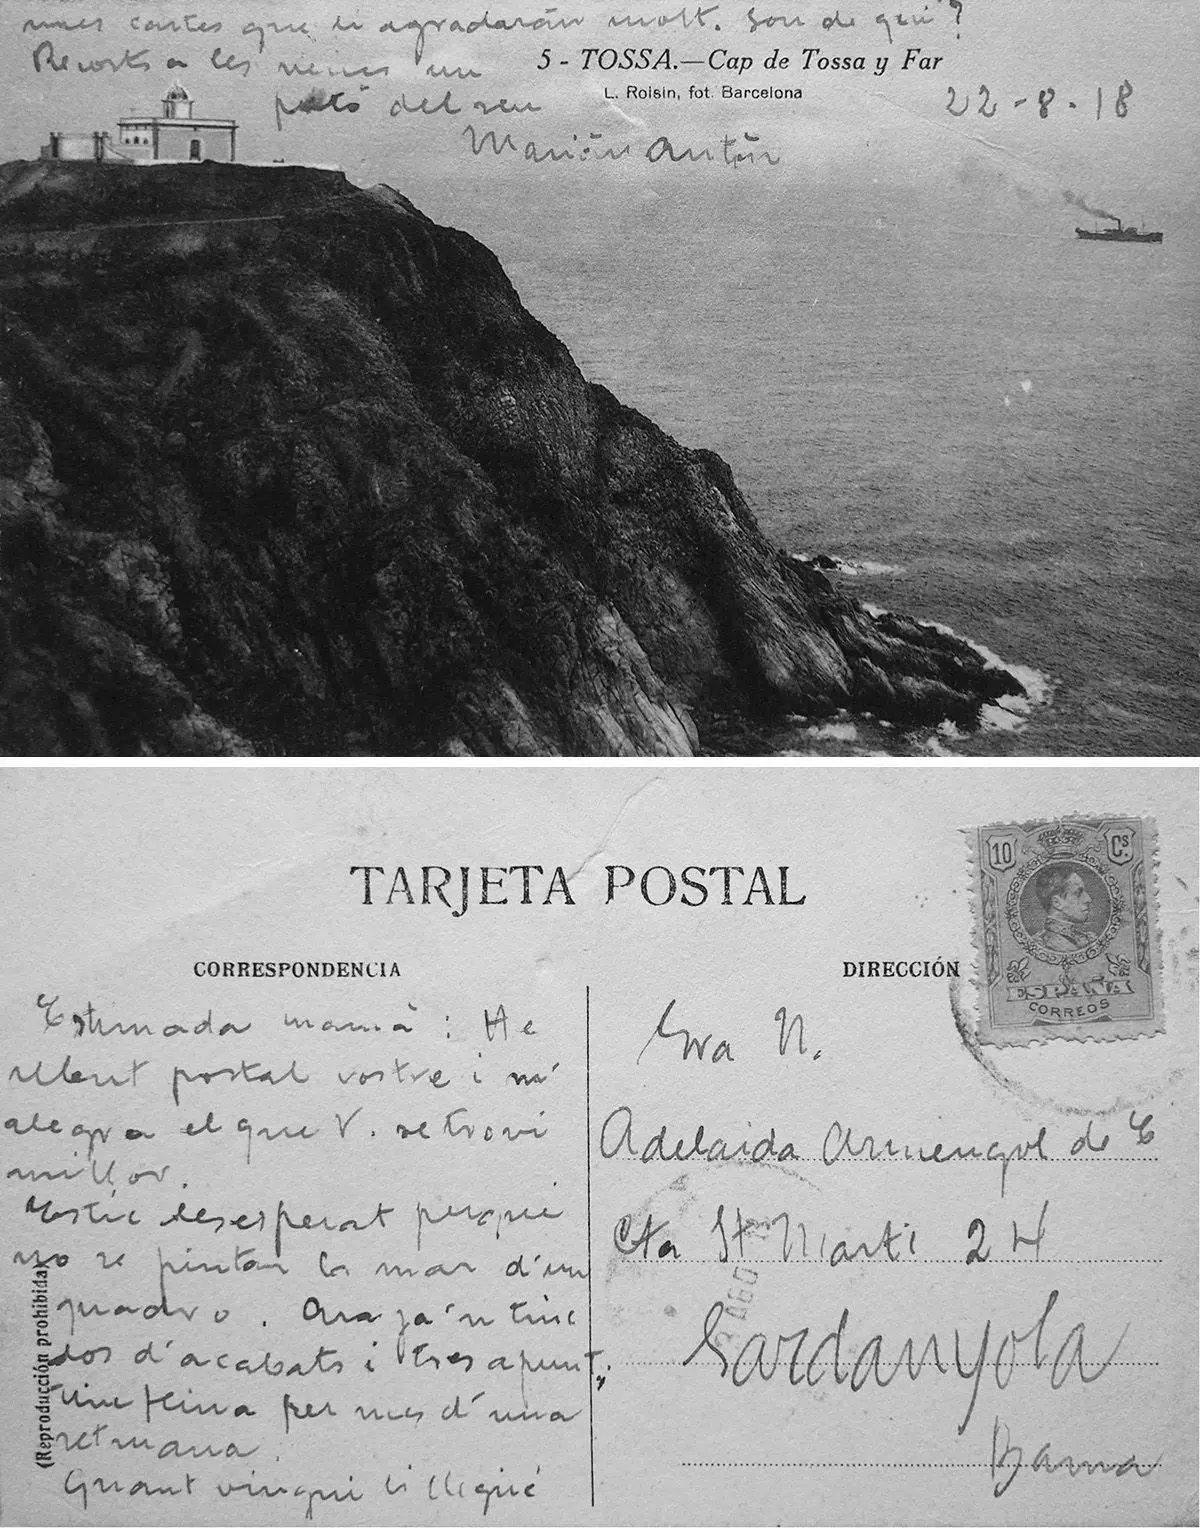 unes cartes que li agradaràn molt. Son de qui?
Recorts a les nenes un
5 - TOSSA.—Cap de Tossa y Far
L. Roisin, fot. Barcelona
petó del seu
22-8-18
Marián Antón
TARJETA POSTAL
CORRESPONDENCIA
DIRECCIÓN
10 Cs.
ESPAÑA
CORREOS
Estimada mamá: He
rebut postal vostre i m'
alegra el que V. se trovi
millor.
Estic desesperat perque
no se pintar la mar d'un
quadro. Ara ja'n tinc
dos d'acabats i tres apunts,
Tinc feina per mes d'una
setmana.
Quant vingui li llegiré
(Reproducción prohibida)
Sra N.
Adelaida Armengol de E
Cta St Marti 24
Sardanyola
Barna
AGO